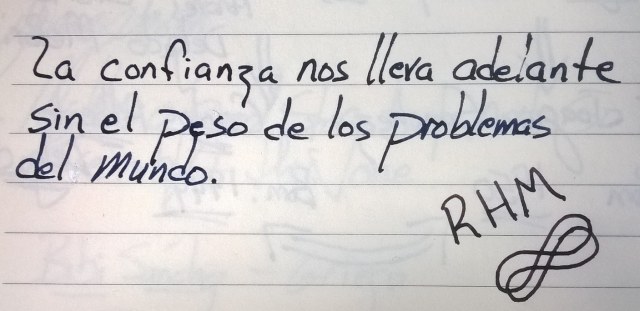 La confianza nos lleva adelante
sin el peso de los problemas
del mundo.
RHM